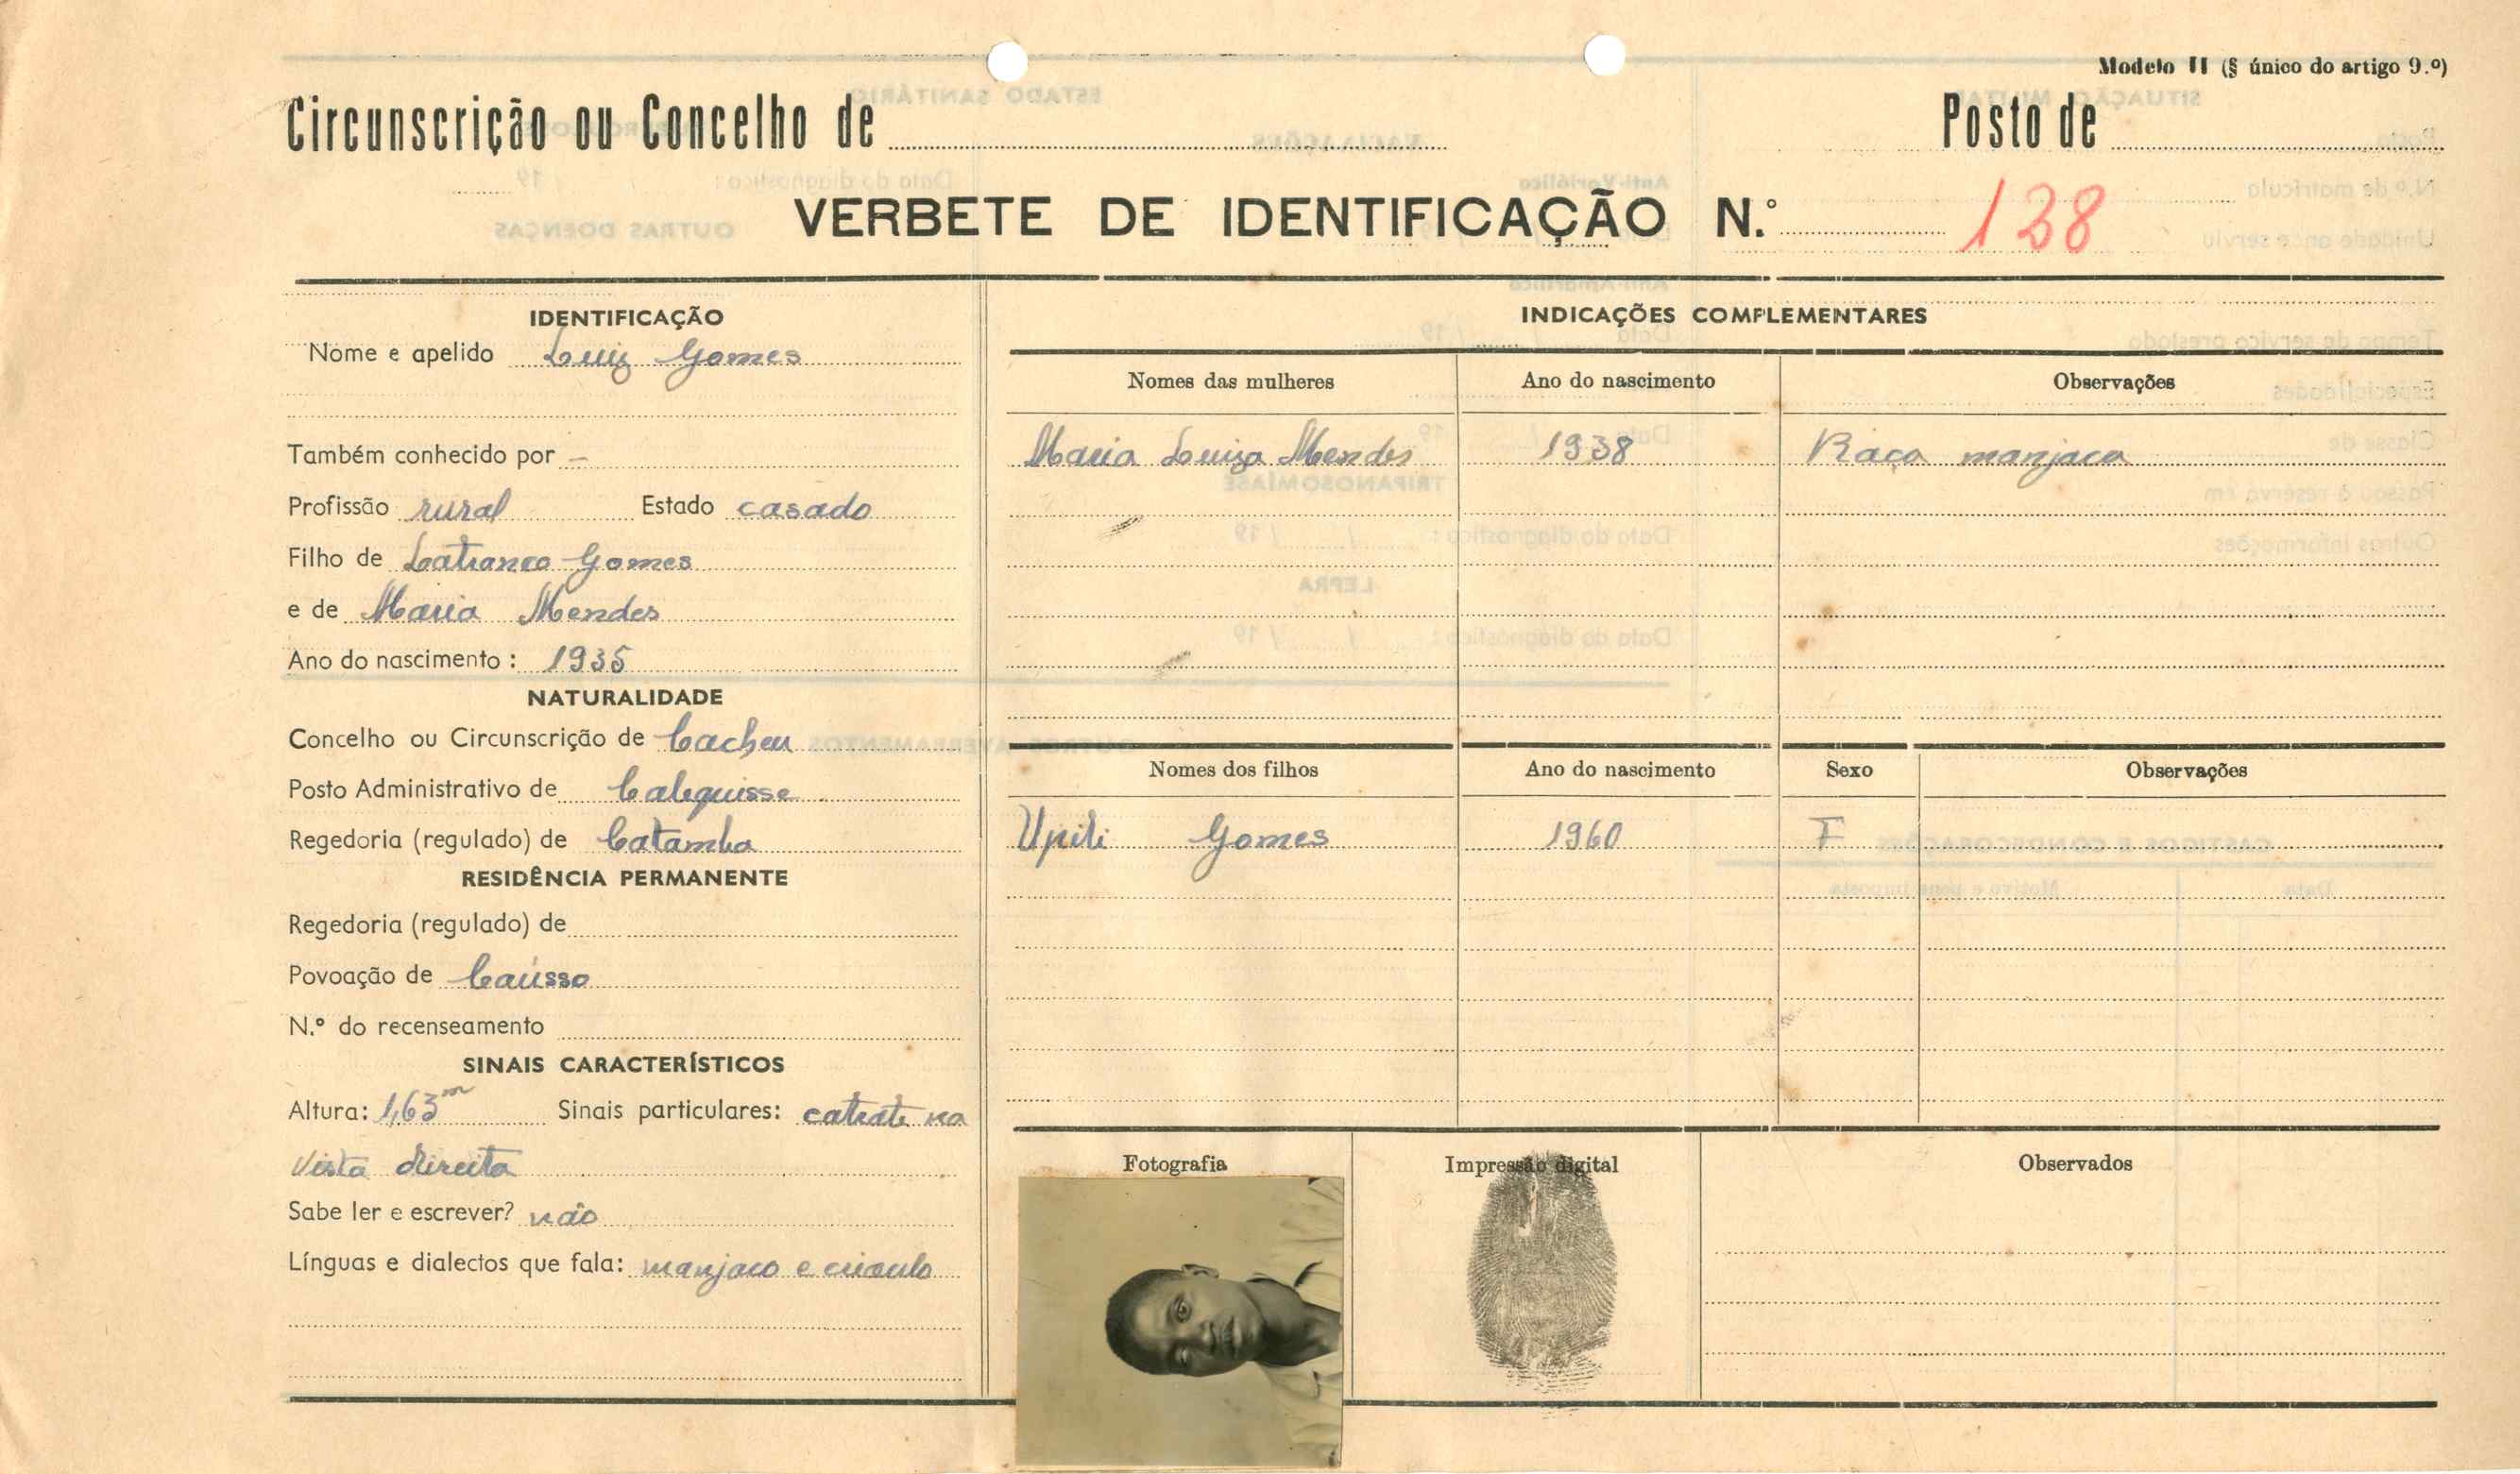 Modelo II (§ único do artigo 9.º)
Circunscrição ou Concelho de Posto de
VERBETE DE IDENTIFICAÇÃO N.º 138
IDENTIFICAÇÃO
Nome e apelido Luiz Gomes
Também conhecido por —
Profissão rural Estado casado
Filho de Gomes
e de Maria Mendes
Ano do nascimento: 1935
NATURALIDADE
Concelho ou Circunscrição de Cacheu
Posto Administrativo de Calequisse
Regedoria (regulado) de Catamba
RESIDÊNCIA PERMANENTE
Regedoria (regulado) de
Povoação de Caússo
N.º do recenseamento
SINAIS CARACTERÍSTICOS
Altura: 1,63m Sinais particulares: na
vista direita
Sabe ler e escrever? não
Línguas e dialectos que fala: manjaco e crioulo
INDICAÇÕES COMPLEMENTARES
Nomes das mulheres Ano do nascimento Observações
Maria Luiza Mendes 1938 Raça manjaca
Nomes dos filhos Ano do nascimento Sexo Observações
Upili Gomes 1960 F
Fotografia Impressão digital Observados